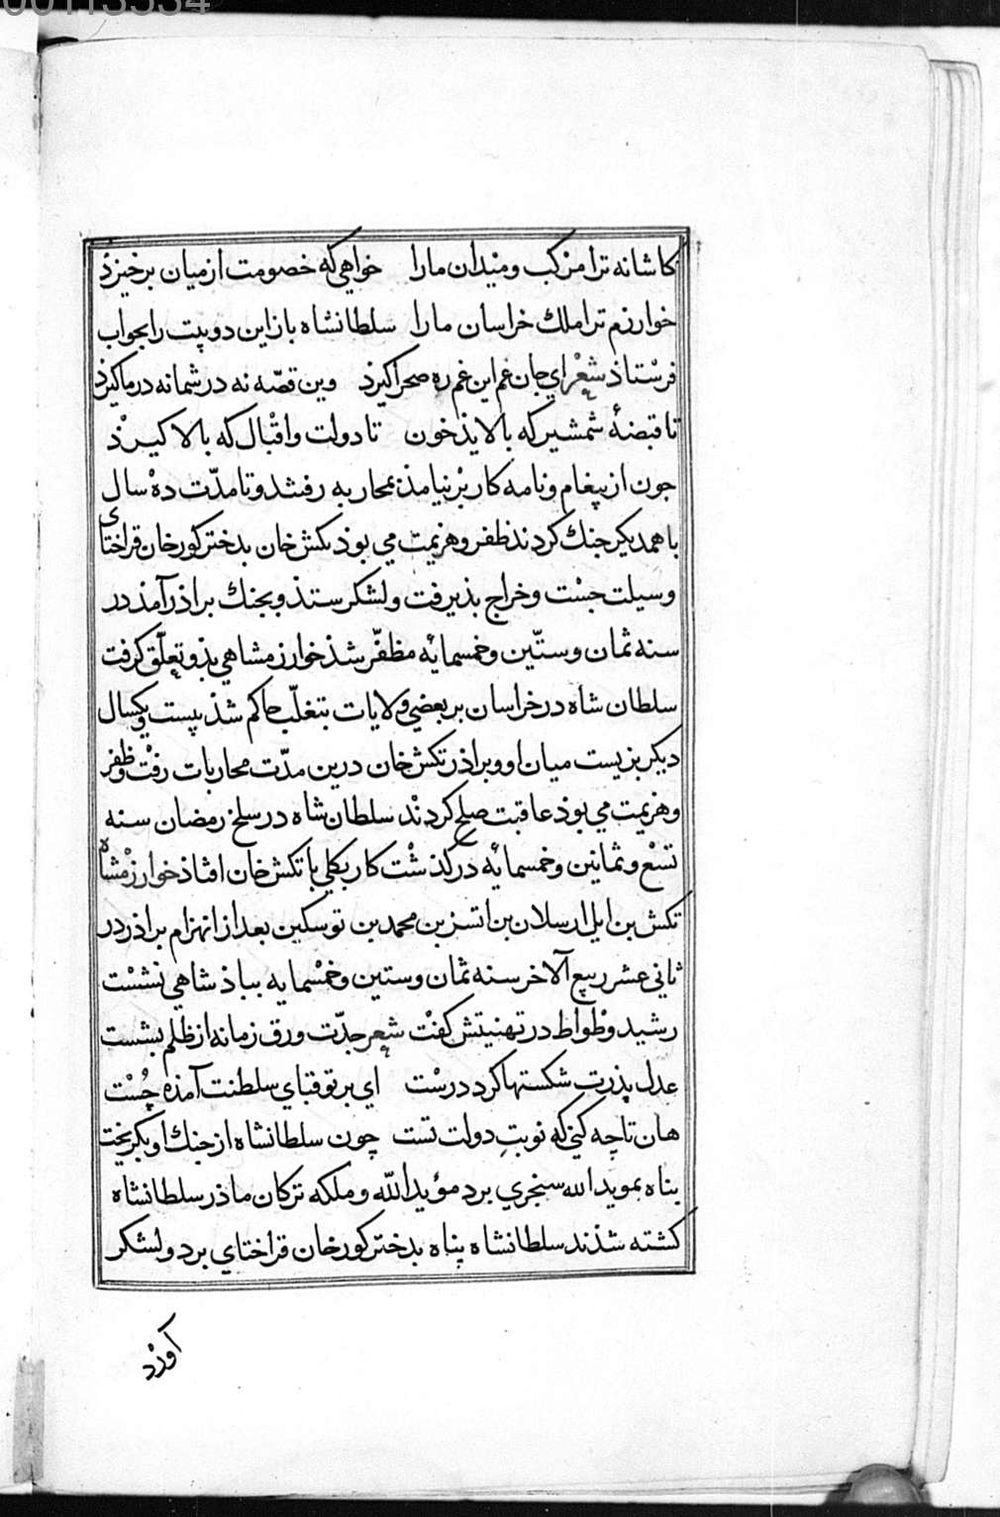 00113534
کاشانه ترا مرکب و میدان مارا خواهی که خصومت از میان برخیزد
خوارزم ترا ملك خراسان مارا سلطانشاه باز این دو بیت را بجواب
فرستاذ شعر ای جان عم این غم ره صحرا کیرذ وین قصّه نه در شما نه در ما کیرذ
تا قبضهٔ شمشیر که بالایذ خون تا دولت و اقبال که بالا کیرذ
جون از پیغام و نامه کار برنیامذ بمحاربه رفتند و تا مدّت ده سال
با همدیکر جنك کردند ظفر و هزیمت می بوذ تکش خان بدختر کورخان قراختای
وسیلت جست و خراج بذیرفت و لشکر ستذ و بجنك براذر آمذ در
سنه ثمان و ستّین و خمسمایه مظفّر شذ خوارزمشاهی بذو تعلّق کرفت
سلطان شاه در خراسان بر بعضی ولایات بتغلّب حاکم شذ بیست و یکسال
دیکر بزیست میان او و براذر تکش خان درین مدّت محاربات رفت و ظفر
و هزیمت می بوذ عاقبت صلح کردند سلطان شاه در سلخ رمضان سنه
تسع و ثمانین و خمسمایه درکذشت کار بکلی با تکش خان افتاذ خوارزمشاه
تکش بن ایل ارسلان بن اتسز بن محمد بن نوسکین بعد از انهزام براذر در
ثانی عشر ربیع آلاخر سنه ثمان و ستین و خمسمایه بباذشاهی نشست
رشید وطواط در تهنیتش کفت شعر جدّت ورق زمانه از ظلم بشست
عدل پذرت شکستها کرد درست ای بر تو قبای سلطنت آمذه چُست
هان تا چه کنی که نوبتِ دولت تست چون سلطانشاه از جنك او بکریخت
بناه بموید الله سنجری برد مؤید الله و ملکه ترکان ماذر سلطانشاه
کشته شذند سلطانشاه پناه بدختر کورخان قراختای برد و لشکر
آورد